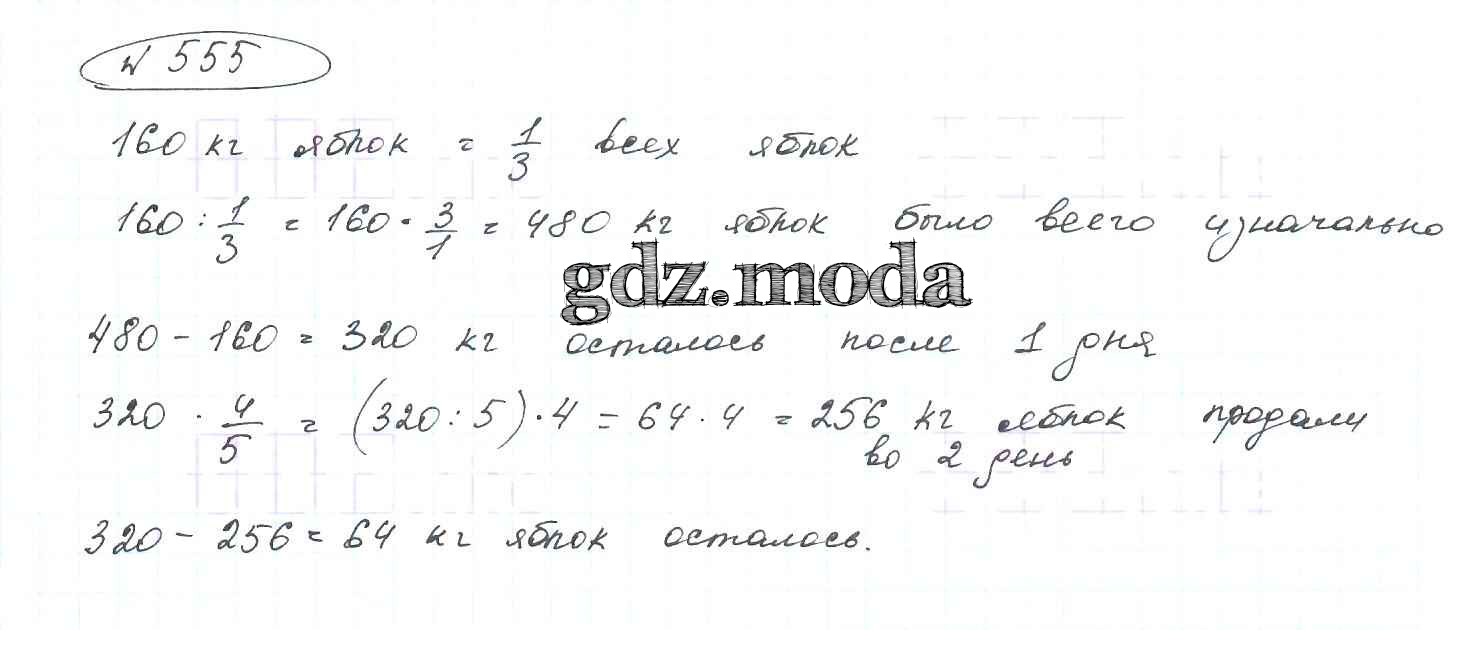 № 555
160 кг яблок = 1/3 всех яблок
160 : 1/3 = 160 · 3/1 = 480 кг яблок было всего изначально
gdz.moda
480 - 160 = 320 кг осталось после 1 дня
320 · 4/5 = (320 : 5) · 4 = 64 · 4 = 256 кг яблок продали
во 2 день
320 - 256 = 64 кг яблок осталось.